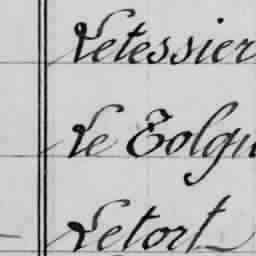 Letessier
Le Tolgu
Letort